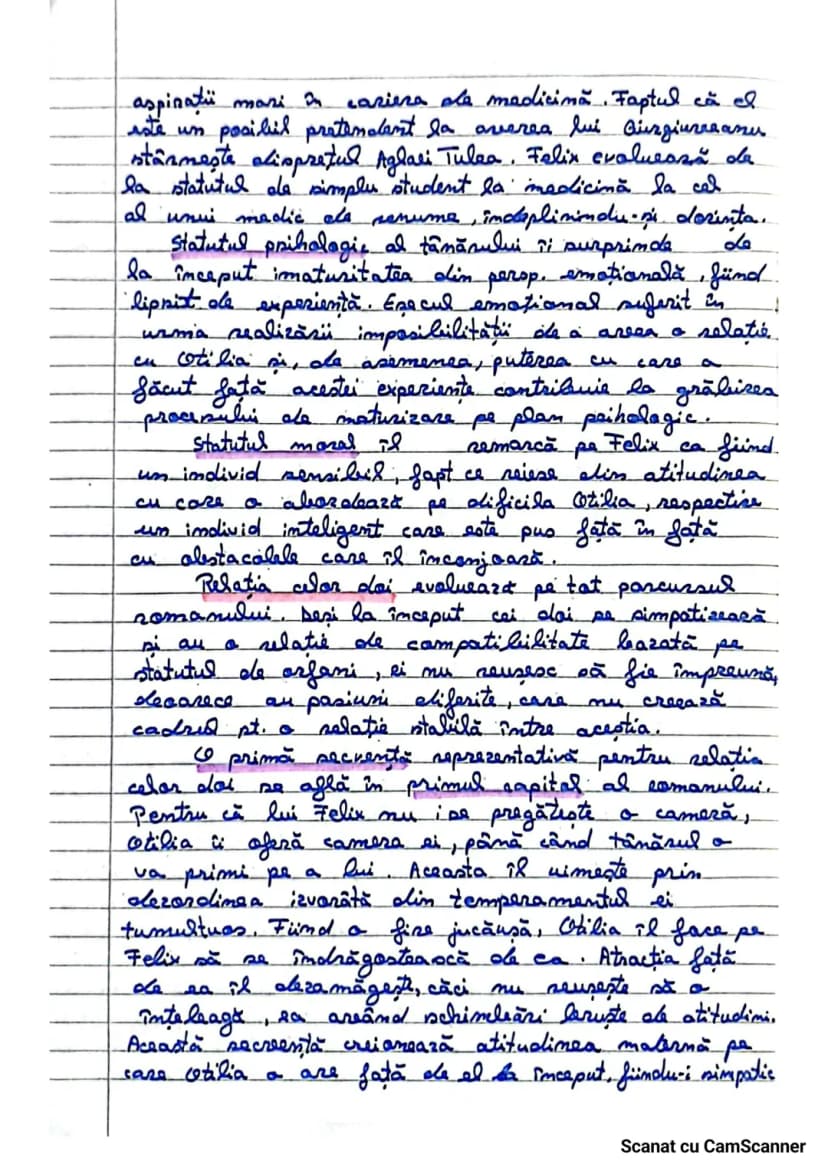 aspirații mari în cariera de medicină. Faptul că el
este un posibil pretendent la averea lui Giurgiuveanu
stârnește disprețul Aglaei Tulea. Felix evoluează de
la statutul de simplu student la medicină la cel
al unui medic de renume, îndeplinindu-și dorința.
Statutul psihologic al tânărului îi surprinde de
la început imaturitatea din persp. emoțională, fiind
lipsit de experiență. Eșecul emoțional suferit în
urma realizării imposibilității de a avea o relație
cu Otilia și, de asemenea, puterea cu care a
făcut față acestei experiențe contribuie la grăbirea
procesului de maturizare pe plan psihologic.
Statutul moral îl remarcă pe Felix ca fiind
un individ sensibil, fapt ce reiese din atitudinea
cu care o abordează pe dificila Otilia, respectiv
un individ inteligent care este pus față în față
cu obstacolele care îl înconjoară.
Relația celor doi evoluează pe tot parcursul
romanului. Deși la început cei doi se simpatizează
și au o relație de compatibilitate bazată pe
statutul de orfani, ei nu reușesc să fie împreună,
deoarece au pasiuni diferite, care nu creează
cadrul pt. o relație stabilă între aceștia.
O primă secvență reprezentativă pentru relația
celor doi se află în primul capitol al romanului.
Pentru că lui Felix nu i se pregătește o cameră,
Otilia îi oferă camera ei, până când tânărul o
va primi pe a lui. Aceasta îl uimește prin
dezordinea izvorâtă din temperamentul ei
tumultuos. Fiind o fire jucăușă, Otilia îl face pe
Felix să se îndrăgostească de ea. Atracția față
de ea îl dezamăgește, căci nu reușește să o
înțeleagă, ea având schimbări bruște de atitudini.
Această secvență creionează atitudinea maternă pe
care Otilia o are față de el la început, fiindu-i simpatic
Scanat cu CamScanner